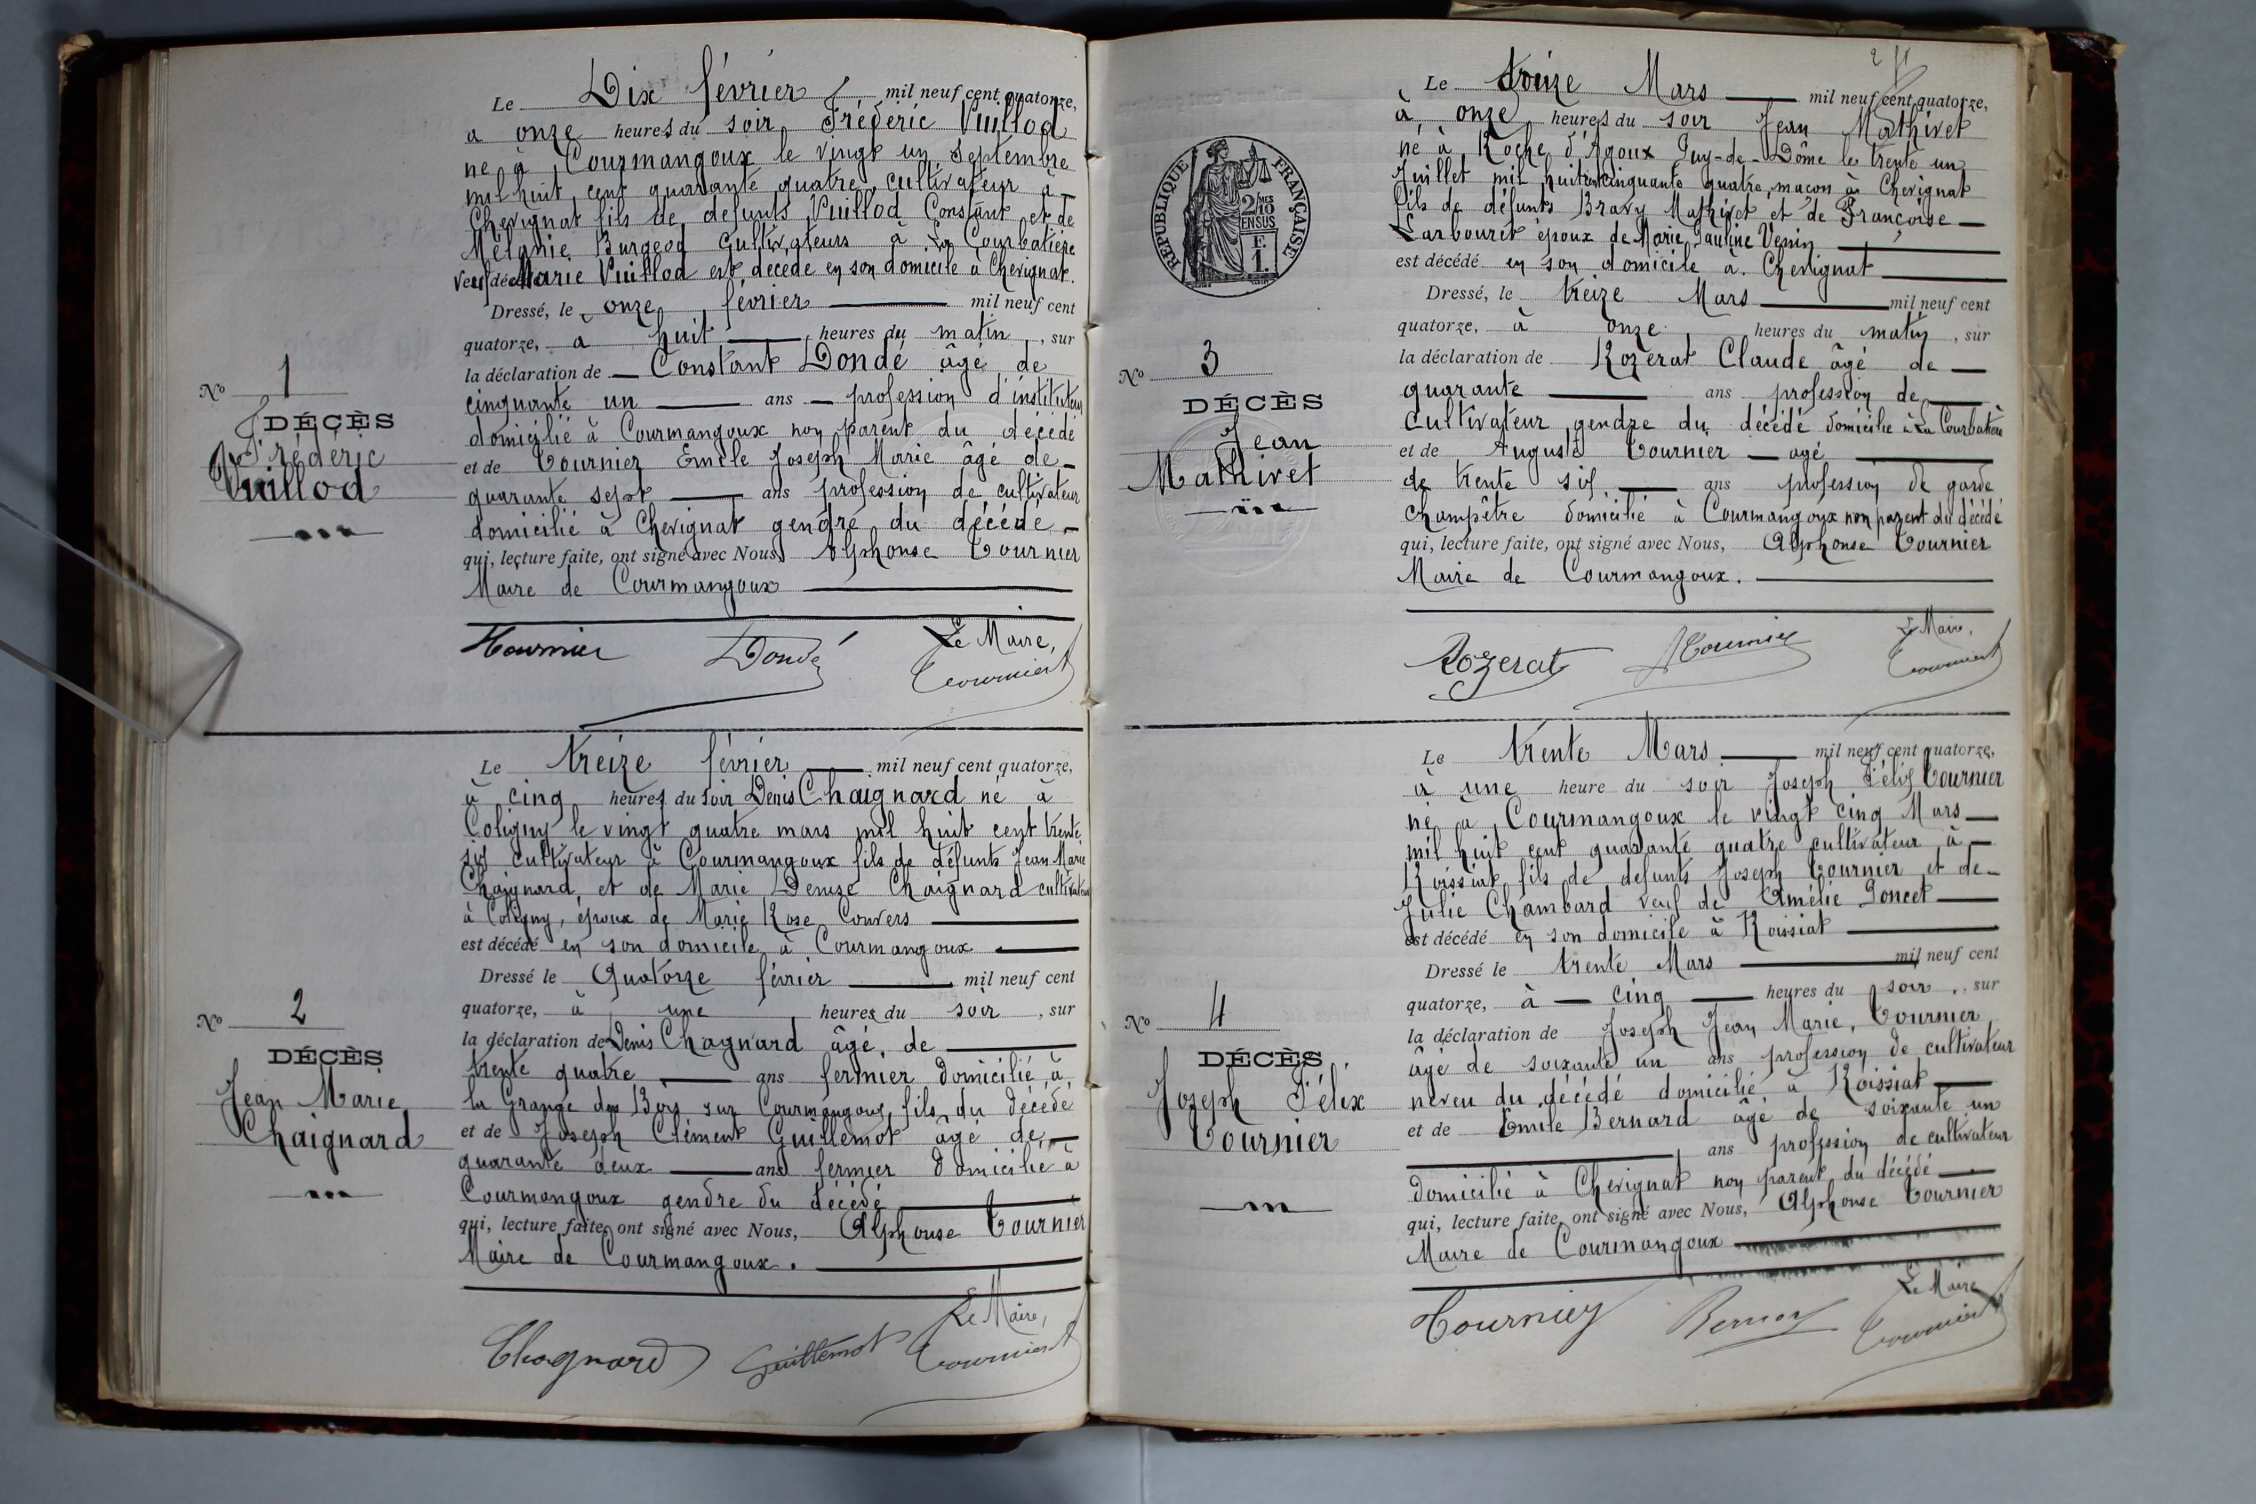 Le Dix février mil neuf cent quatorze,
a onze heures du soir Frédéric Vuillod
né à Courmangoux le vingt un Septembre
mil huit cent quarante quatre cultivateur à
Chevignat fils de defunts Vuillod Constant et de
Mélanie Burgeod Cultivateurs à La Courbatière
veuf de Marie Vuillod est décédé en son domicile à Chevignat.
Dressé, le onze février mil neuf cent
quatorze, a huit heures du matin, sur
la déclaration de Constant Dondé âgé de
cinquante un ans profession d'instituteur
domicilié à Courmangoux non parent du décédé
et de Tournier Emile Joseph Marie âgé de
quarante sept ans profession de cultivateur
domicilié à Chevignat gendre du décédé
qui, lecture faite, ont signé avec Nous, Alphonse Tournier
Maire de Courmangoux
Tournier Dondé Le Maire,
Tournier
No 1
DÉCÈS
Frédéric
Vuillod
Le treize février mil neuf cent quatorze,
à cinq heures du soir Denis Chaignard né à
Coligny le vingt quatre mars mil huit cent trente
six cultivateur à Courmangoux fils de défunts Jean Marie
Chaignard et de Marie Denise Chaignard cultivateurs
à Coligny, époux de Marie Rose Convers
est décédé en son domicile à Courmangoux
Dressé le Quatorze février mil neuf cent
quatorze, à une heures du soir, sur
la déclaration de Denis Chagnard âgé de
trente quatre ans fermier domicilié à
la Grange des Bois sur Courmangoux fils du décédé
et de Joseph Clément Guillemot âgé de
quarante deux ans fermier domicilié à
Courmangoux gendre du décédé
qui, lecture faite, ont signé avec Nous, Alphonse Tournier
Maire de Courmangoux.
Chagnard Guillemot Le Maire,
Tournier
No 2
DÉCÈS
Jean Marie
Chaignard
Le treize Mars mil neuf cent quatorze,
à onze heures du soir Jean Mathivet
né à Roche d'Agoux Puy-de-Dôme le trente un
Juillet mil huit cent cinquante quatre, maçon à Chevignat
fils de défunts Bravy Mathivet et de Françoise
Larbouret époux de Marie Pauline Venin
est décédé en son domicile à Chevignat
Dressé, le treize Mars mil neuf cent
quatorze, à onze heures du matin, sur
la déclaration de Rozerat Claude âgé de
quarante ans profession de
cultivateur gendre du décédé domicilié à La Courbatière
et de Auguste Tournier agé
de trente six ans profession de garde
champêtre domicilié à Courmangoux non parent du décédé
qui, lecture faite, ont signé avec Nous, Alphonse Tournier
Maire de Courmangoux.
Rozerat A Tournier Le Maire,
Tournier
RÉPUBLIQUE FRANÇAISE
2/10
EN SUS
F.
1.
No 3
DÉCÈS
Jean
Mathivet
Le trente Mars mil neuf cent quatorze,
à une heure du soir Joseph Félix Tournier
né a Courmangoux le vingt cinq Mars
mil huit cent quarante quatre cultivateur à
Roissiat fils de defunts Joseph Tournier et de
Julie Chambard veuf de Amélie Poncet
est décédé en son domicile à Roissiat
Dressé le trente Mars mil neuf cent
quatorze, à cinq heures du soir, sur
la déclaration de Joseph Jean Marie Tournier
âgé de soixante un ans profession de cultivateur
neveu du décédé domicilié à Roissiat
et de Emile Bernard âgé de soixante un
ans profession de cultivateur
domicilié à Chevignat non parent du décédé
qui, lecture faite, ont signé avec Nous, Alphonse Tournier
Maire de Courmangoux
Tournier Le Maire
Tournier
No 4
DÉCÈS
Joseph Félix
Tournier